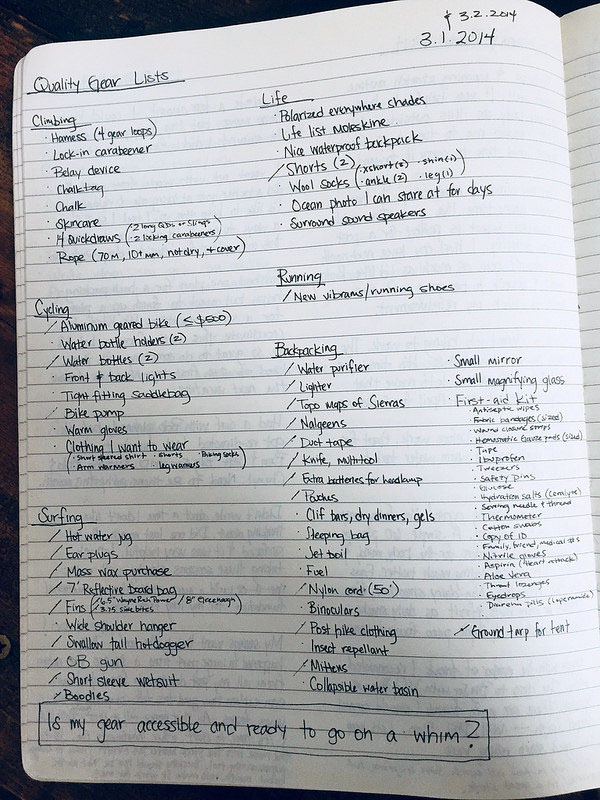 & 3.2.2014
3.1.2014
Quality Gear Lists
Climbing
· Harness (4 gear loops)
· Lock-in carabeener
· Belay device
· Chalkbag
· Chalk
· Skincare
· 4 Quickdraws (· 2 long QDs or Slings
· 2 locking carabeeners)
· Rope (70m, 10+mm, not dry, + cover)
Cycling
/ Aluminum geared bike (≤ $500)
· Water bottle holders (2)
/ Water bottles (2)
· Front & back lights
· Tight fitting saddlebag
· Bike pump
· Warm gloves
· Clothing I want to wear
(· Short sleeved shirt · Shorts · Biking socks
· Arm warmers · leg warmers)
Surfing
/ Hot water jug
/ Ear plugs
/ Mass wax purchase
/ 7' Reflective board bag
/ Fins (/ 6.5" Wayne Rich Power / 8" Greenough
/ 3.75 side bites)
· Wide shoulder hanger
/ Swallow tail hotdogger
/ CB gun
/ Short sleeve wetsuit
/ Boodies
Life
· Polarized everywhere shades
· Life list moleskine
· Nice waterproof backpack
/ Shorts (2)
· Wool socks (· xshort(2) · shin(1)
· ankle (2) · leg(1))
· Ocean photo I can stare at for days
· Surround sound speakers
Running
/ New vibrams/running shoes
Backpacking
/ Water purifier
/ Lighter
/ Topo maps of Sierras
/ Nalgeens
/ Duct tape
/ Knife, multitool
/ Extra batteries for headlamp
/ Pouches
· Clif bars, dry dinners, gels
· Sleeping bag
· Jet boil
· Fuel
/ Nylon cord (50')
· Binoculars
/ Post hike clothing
· Insect repellant
/ Mittens
· Collapsible water basin
· Small mirror
· Small magnifying glass
· First-aid kit
· Antiseptic wipes
· Fabric bandages (sized)
· Wound closure strips
· Hemostatic Gauze pads (sized)
· Tape
· Ibuprofen
· Tweezers
· Safety pins
· Glucose
· Hydration salts (Ceralyte)
· Sewing needle & thread
· Thermometer
· Cotton swabs
· Copy of ID
· Family, friend, medical #s
· Nitrile gloves
· Aspirin (Heart attack)
· Aloe Vera
· Throat lozenges
· Eyedrops
· Diarrhea pills (loperamide)
/ Ground tarp for tent
Is my gear accessible and ready to go on a whim?